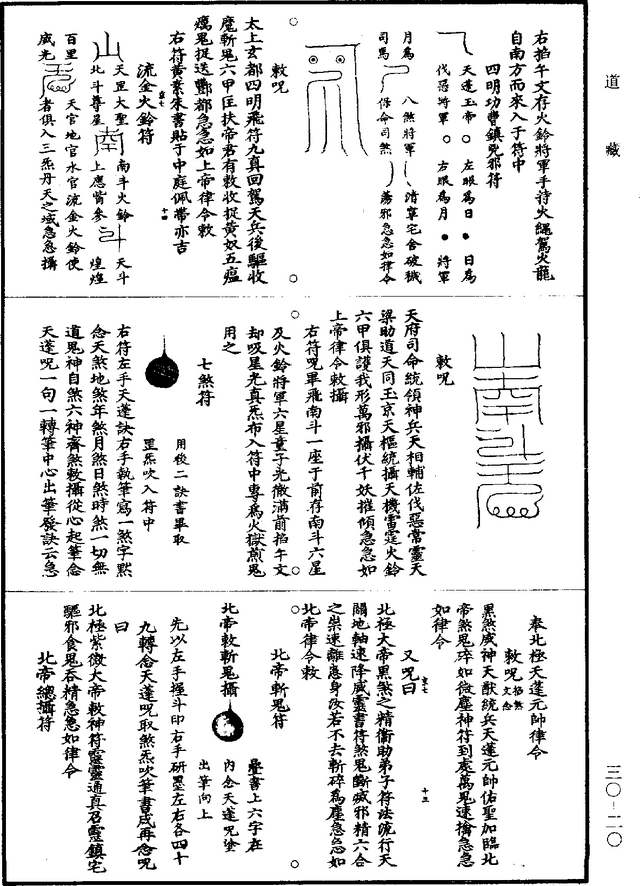 道藏
三〇-二〇
右掐午文存火鈴將軍手持火繩駕火龍
自南方而來入于符中
四明功曹鎮兇邪符
天蓬玉帝 ○ 左眼為日 ● 日為
伐惡將軍 ○ 右眼為月 ● 將軍
月為
司馬
八煞將軍
保命司煞
清寧宅舍破穢
蕩邪急急如律令
敕呪
太上玄都四明飛符九真回駕天兵後驅收
魔斬鬼六甲匡扶帝君有敕收捉黃奴五瘟
癘鬼捉送酆都急急如上帝律令敕
右符黃素朱書貼于中庭佩帶亦吉
流金火鈴符
天罡大聖
北斗尊星
南斗火鈴
上應觜參
天斗
煌煌
百里
威光
天官地官水官流金火鈴使
者俱入三炁丹天之域急急攝
敕呪
天府司命統領神兵天相輔佐伐惡常靈天
梁助道天同玉京天樞統攝天機雷霆火鈴
六甲俱護我形萬邪攝伏千妖摧傾急急如
上帝律令敕攝
右符呪畢飛南斗一座于前存南斗六星
及火鈴將軍六星童子光徹滿前掐午文
却吸星光真炁布入符中專為火獄煎鬼
用之
七煞符
用後二訣書畢取
罡炁吹入符中
右符左手天蓬訣右手執筆寫一煞字默
念天煞地煞年煞月煞日煞時煞一切無
道鬼神自煞六神齊煞敕攝從心起筆念
天蓬呪一句一轉筆中心出筆發訣云急
奉北極天蓬元帥律令
敕呪
黑煞威神天猷統兵天蓬元帥佑聖加臨北
帝煞鬼碎如微塵神符到處萬鬼速擒急急
如律令
又呪曰
北極大帝黑煞之精衛助弟子符法流行天
關地軸速降威靈書符煞鬼斷滅邪精六合
之祟速離患身汝若不去斬碎為塵急急如
北帝律令敕
北帝斬鬼符
北帝敕斬鬼攝
疊書上六字在
內念天蓬呪塗
出筆向上
先以左手握斗印右手研墨左右各四十
九轉念天蓬呪取煞炁吹筆書成再念呪
曰
北極紫微大帝敕神符靈靈通真召靈鎮宅
驅邪食鬼吞精急急如律令
北帝總攝符